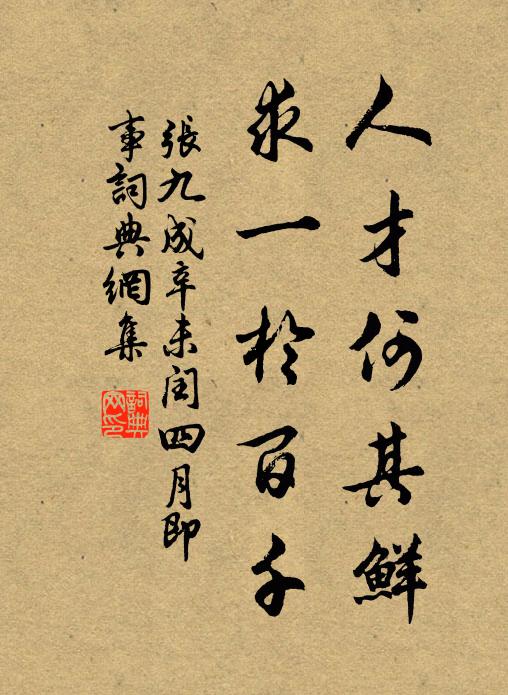 人才何其鮮
求一於百千
張九成辛未閏四月即
事詞典網集
詞典
网印